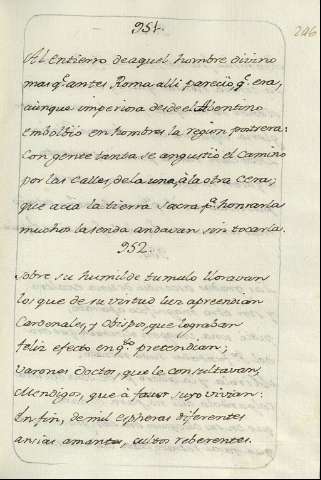 951.
246
Al entierro de aquel hombre divino
mas q. antes Roma alli parecio q. era,
aunque imperiosa desde el Abentino
embolbio en hombres la region postrera:
Con gente tanta se angustio el camino
por las calles, de la una, à la otra cera;
que aca la tierra sacra p.ª honrarla
muchos la senda andavan sin tocarla.
952.
Sobre su humilde tumulo lloravan
los que de su virtud aprendian
Cardenales, y Obispos, que lograban
feliz efecto en q.to pretendian;
varones doctos, que le consultavan,
Mendigos, que à favor suyo vivian:
En fin, de mil espheras diferentes
ansias amantes, cultos reberentes.